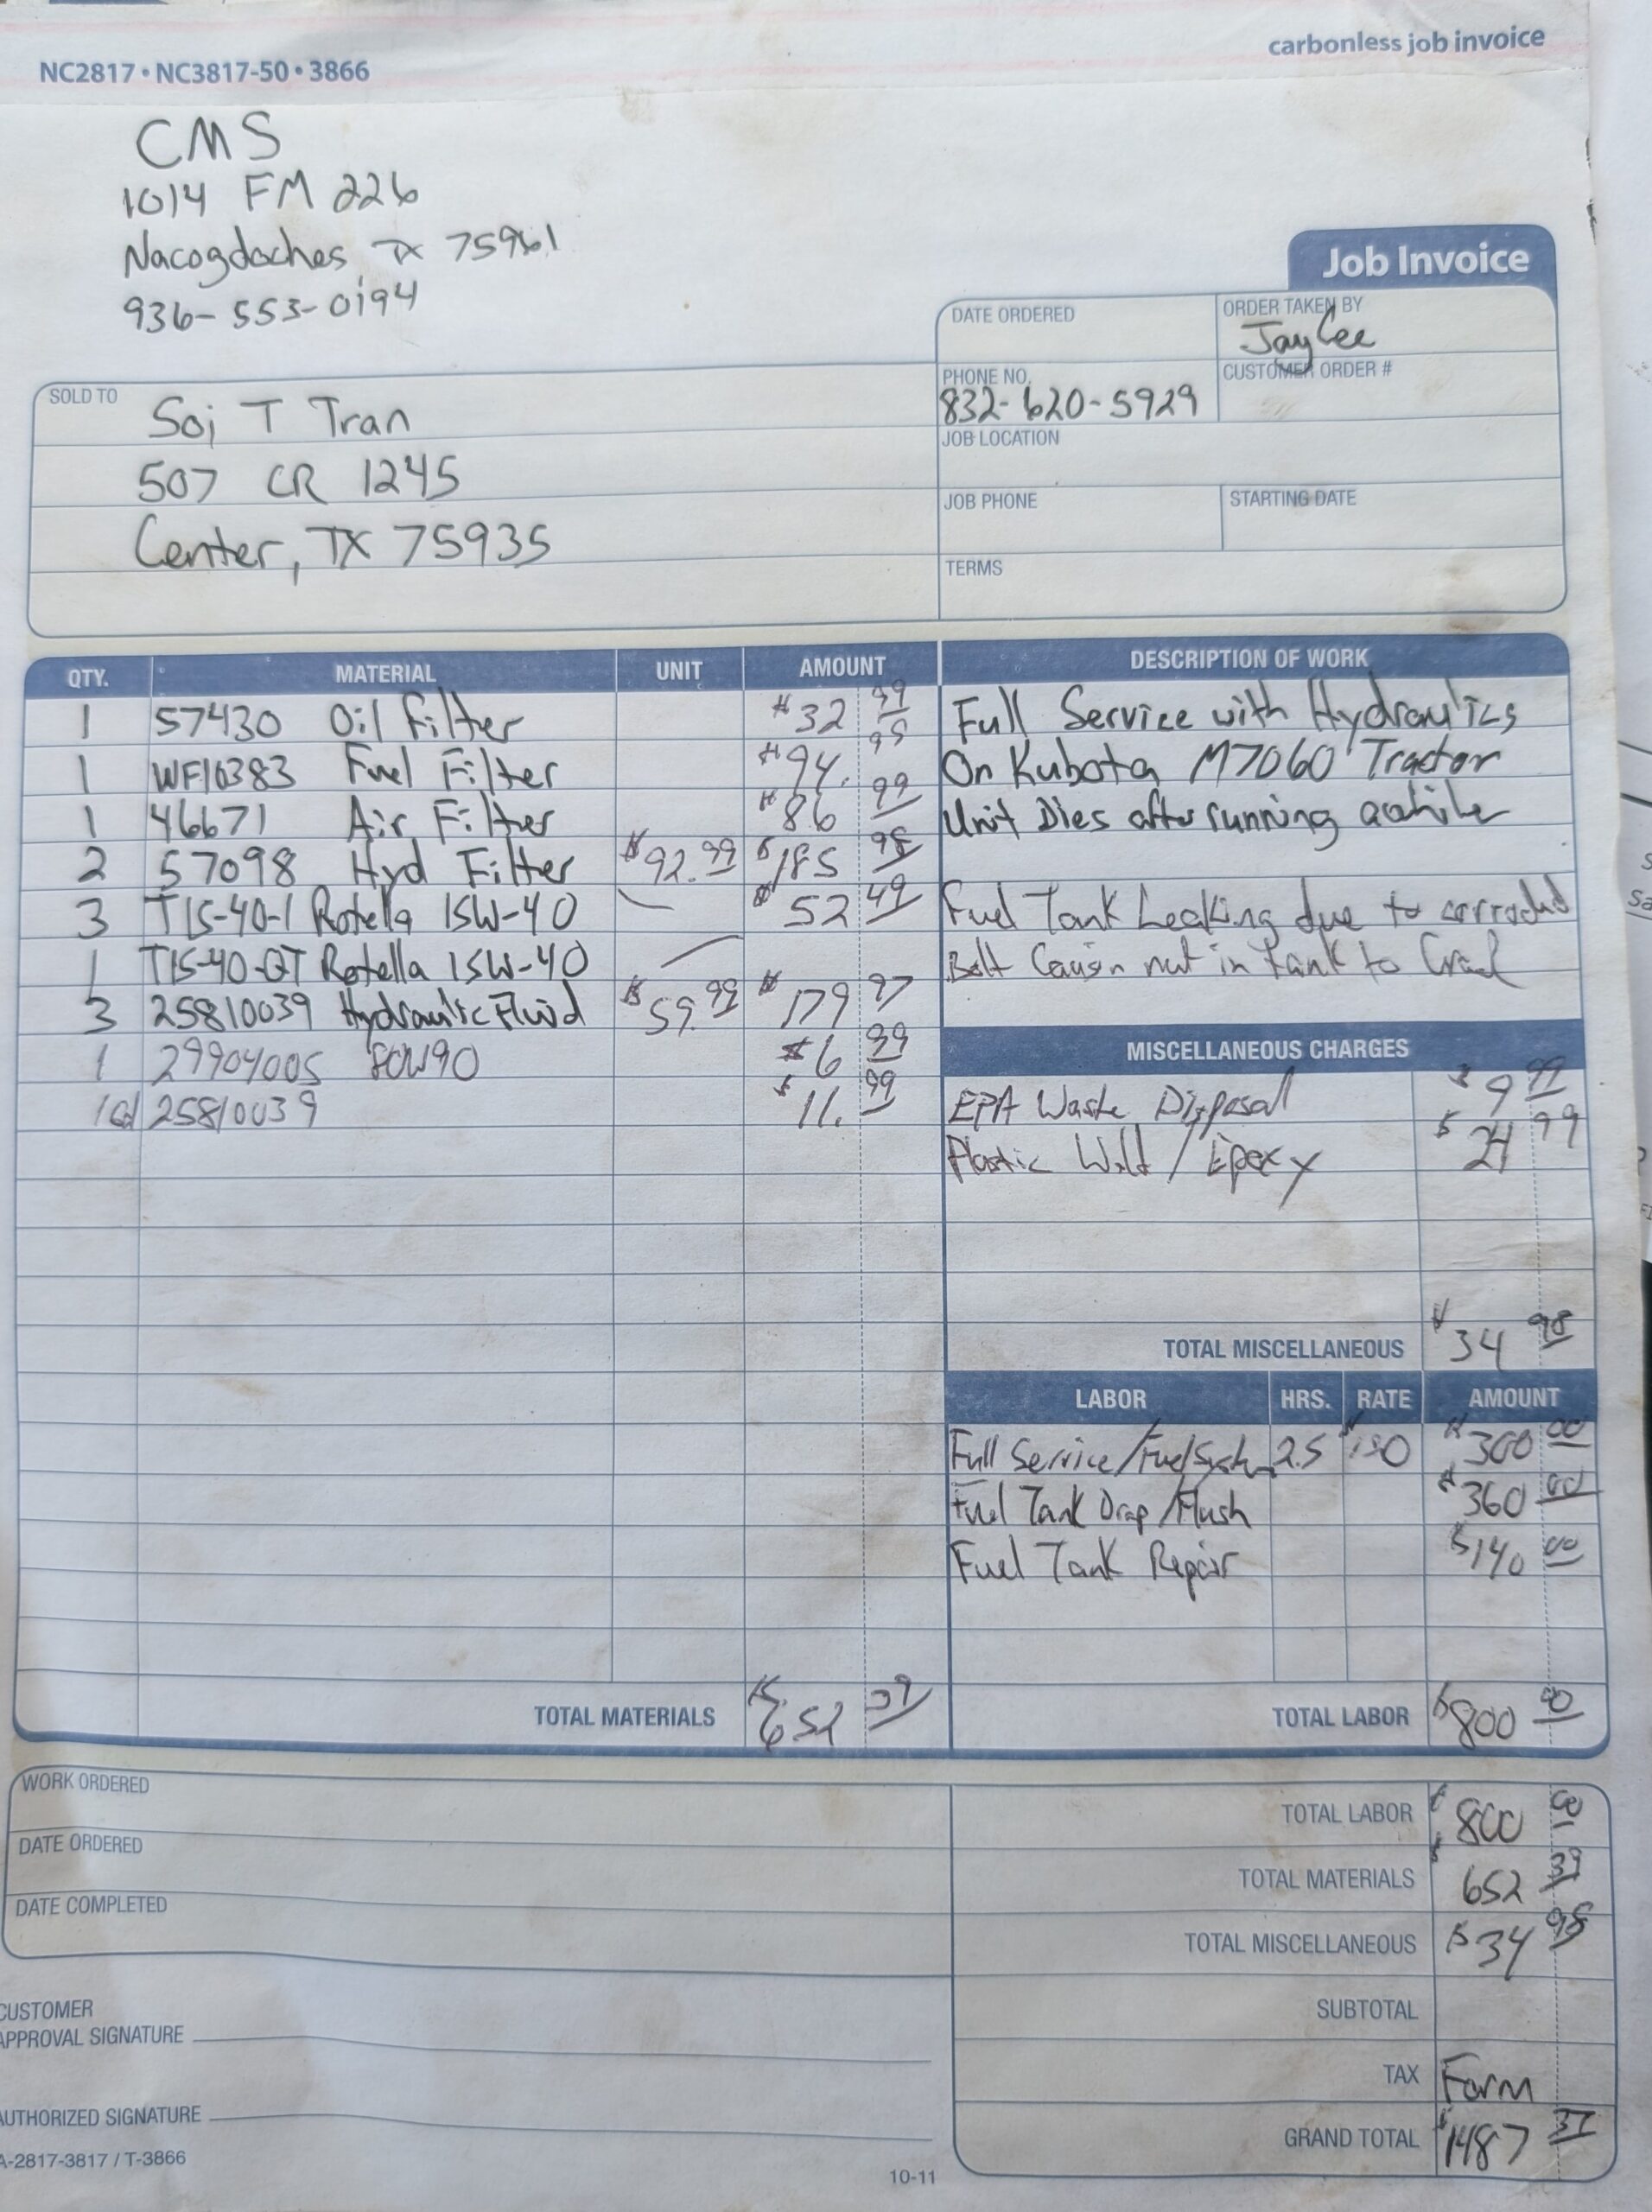 carbonless job invoice
NC2817 • NC3817-50 • 3866
CMS
1014 FM 226
Nacogdoches, TX 75961
936-553-0194
Job Invoice
DATE ORDERED
ORDER TAKEN BY
JayCee
PHONE NO.
832-620-5929
CUSTOMER ORDER #
JOB LOCATION
JOB PHONE
STARTING DATE
TERMS
SOLD TO
Soi T Tran
507 CR 1245
Center, TX 75935
QTY. MATERIAL UNIT AMOUNT
1 57430 Oil Filter $32 99
1 WF10383 Fuel Filter $94. 99
1 46671 Air Filter $86 99
2 57098 Hyd Filter $92.99 $185 98
3 T15-40-1 Rotella 15W-40 $52 49
1 T15-40-QT Rotella 15W-40
3 25810039 Hydraulic Fluid $59.99 $179 97
1 29904005 80W90 $6 99
1gal 25810039 $11. 99
TOTAL MATERIALS $652 39
DESCRIPTION OF WORK
Full Service with Hydraulics
On Kubota M7060 Tractor
Unit Dies after running awhile
Fuel Tank Leaking due to corroded
Bolt Causin nut in tank to
MISCELLANEOUS CHARGES
EPA Waste Disposal $9 99
Plastic Weld / Epoxy $24 99
TOTAL MISCELLANEOUS $34 98
LABOR HRS. RATE AMOUNT
Full Service/Fuel System 2.5 $300 00
Fuel Tank Drop/Flush $360 00
Fuel Tank Repair $140 00
TOTAL LABOR $800 00
WORK ORDERED
DATE ORDERED
DATE COMPLETED
CUSTOMER
APPROVAL SIGNATURE
AUTHORIZED SIGNATURE
A-2817-3817 / T-3866
10-11
TOTAL LABOR $800 00
TOTAL MATERIALS $652 39
TOTAL MISCELLANEOUS $34 98
SUBTOTAL
TAX Farm
GRAND TOTAL $1487 37